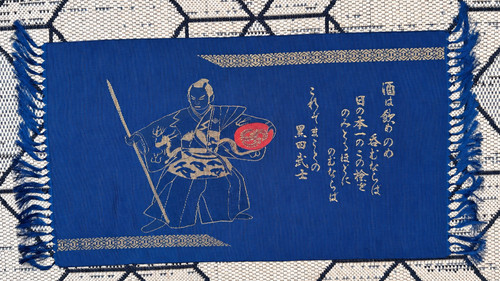 酒は飲め のめ
呑むならは
日の本一のこの槍を
のみとるほとに
のむならは
これそまことの
黒田武士